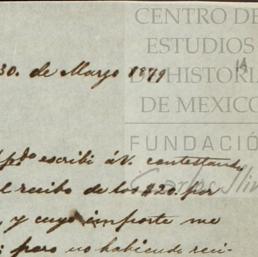 CENTRO DE
ESTUDIOS
DE HISTORIA
DE MEXICO
FUNDACIÓN
Carlos Slim
30. de Marzo 1879
ppdo escribi á V. contestando
el recibo de los $20. por
, y cuyo importe me
; pero no habiendo reci-